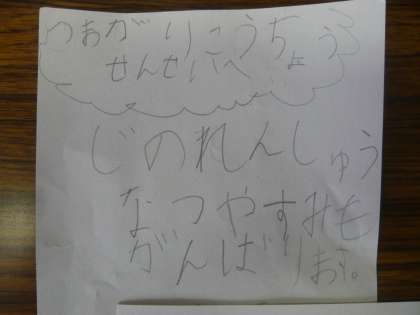 つあがりこうちょう
せんせいへ
じのれんしゅう
なつやすみも
がんばります。